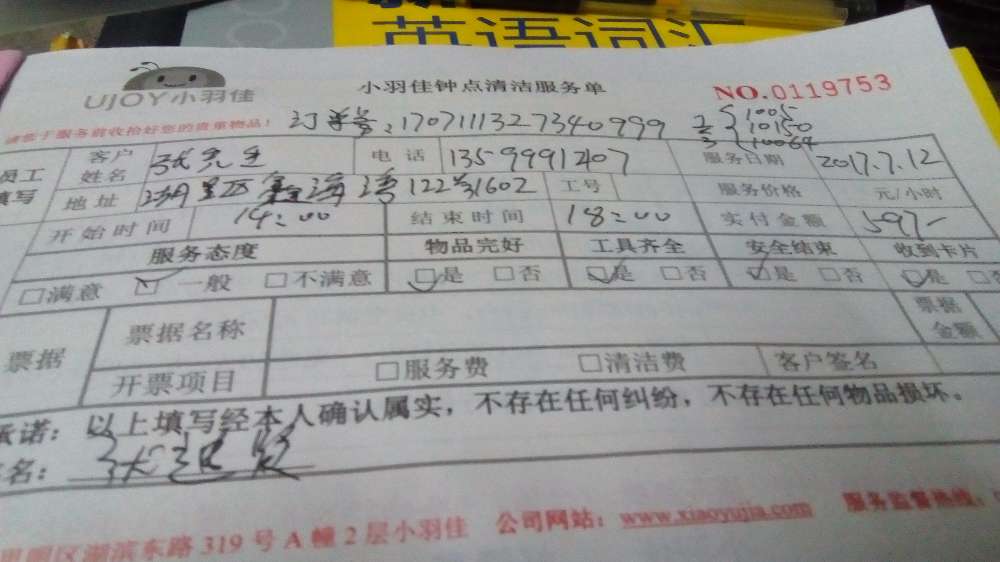 英语词汇
UJOY小羽佳
小羽佳钟点清洁服务单
NO.0119753
请您于服务前收拾好您的贵重物品!
订单号:1707111327340999
10150
10064
员工填写
客户姓名
张先生
电话
13599991207
服务日期
2017.7.12
地址
湖里区 海湾122号1602
工号
服务价格
元/小时
开始时间
14:00
结束时间
18:00
实付金额
597-
服务态度
物品完好
工具齐全
安全结束
收到卡片
□满意 □一般 □不满意 □是 □否 □是 □否 □是 □否 □是
票据
票据名称
票据金额
开票项目
□服务费
□清洁费
客户签名
承诺:以上填写经本人确认属实,不存在任何纠纷,不存在任何物品损坏。
名:张
明区湖滨东路319号A幢2层小羽佳 公司网站:www.xiaoyujia.com 服务监督热线: